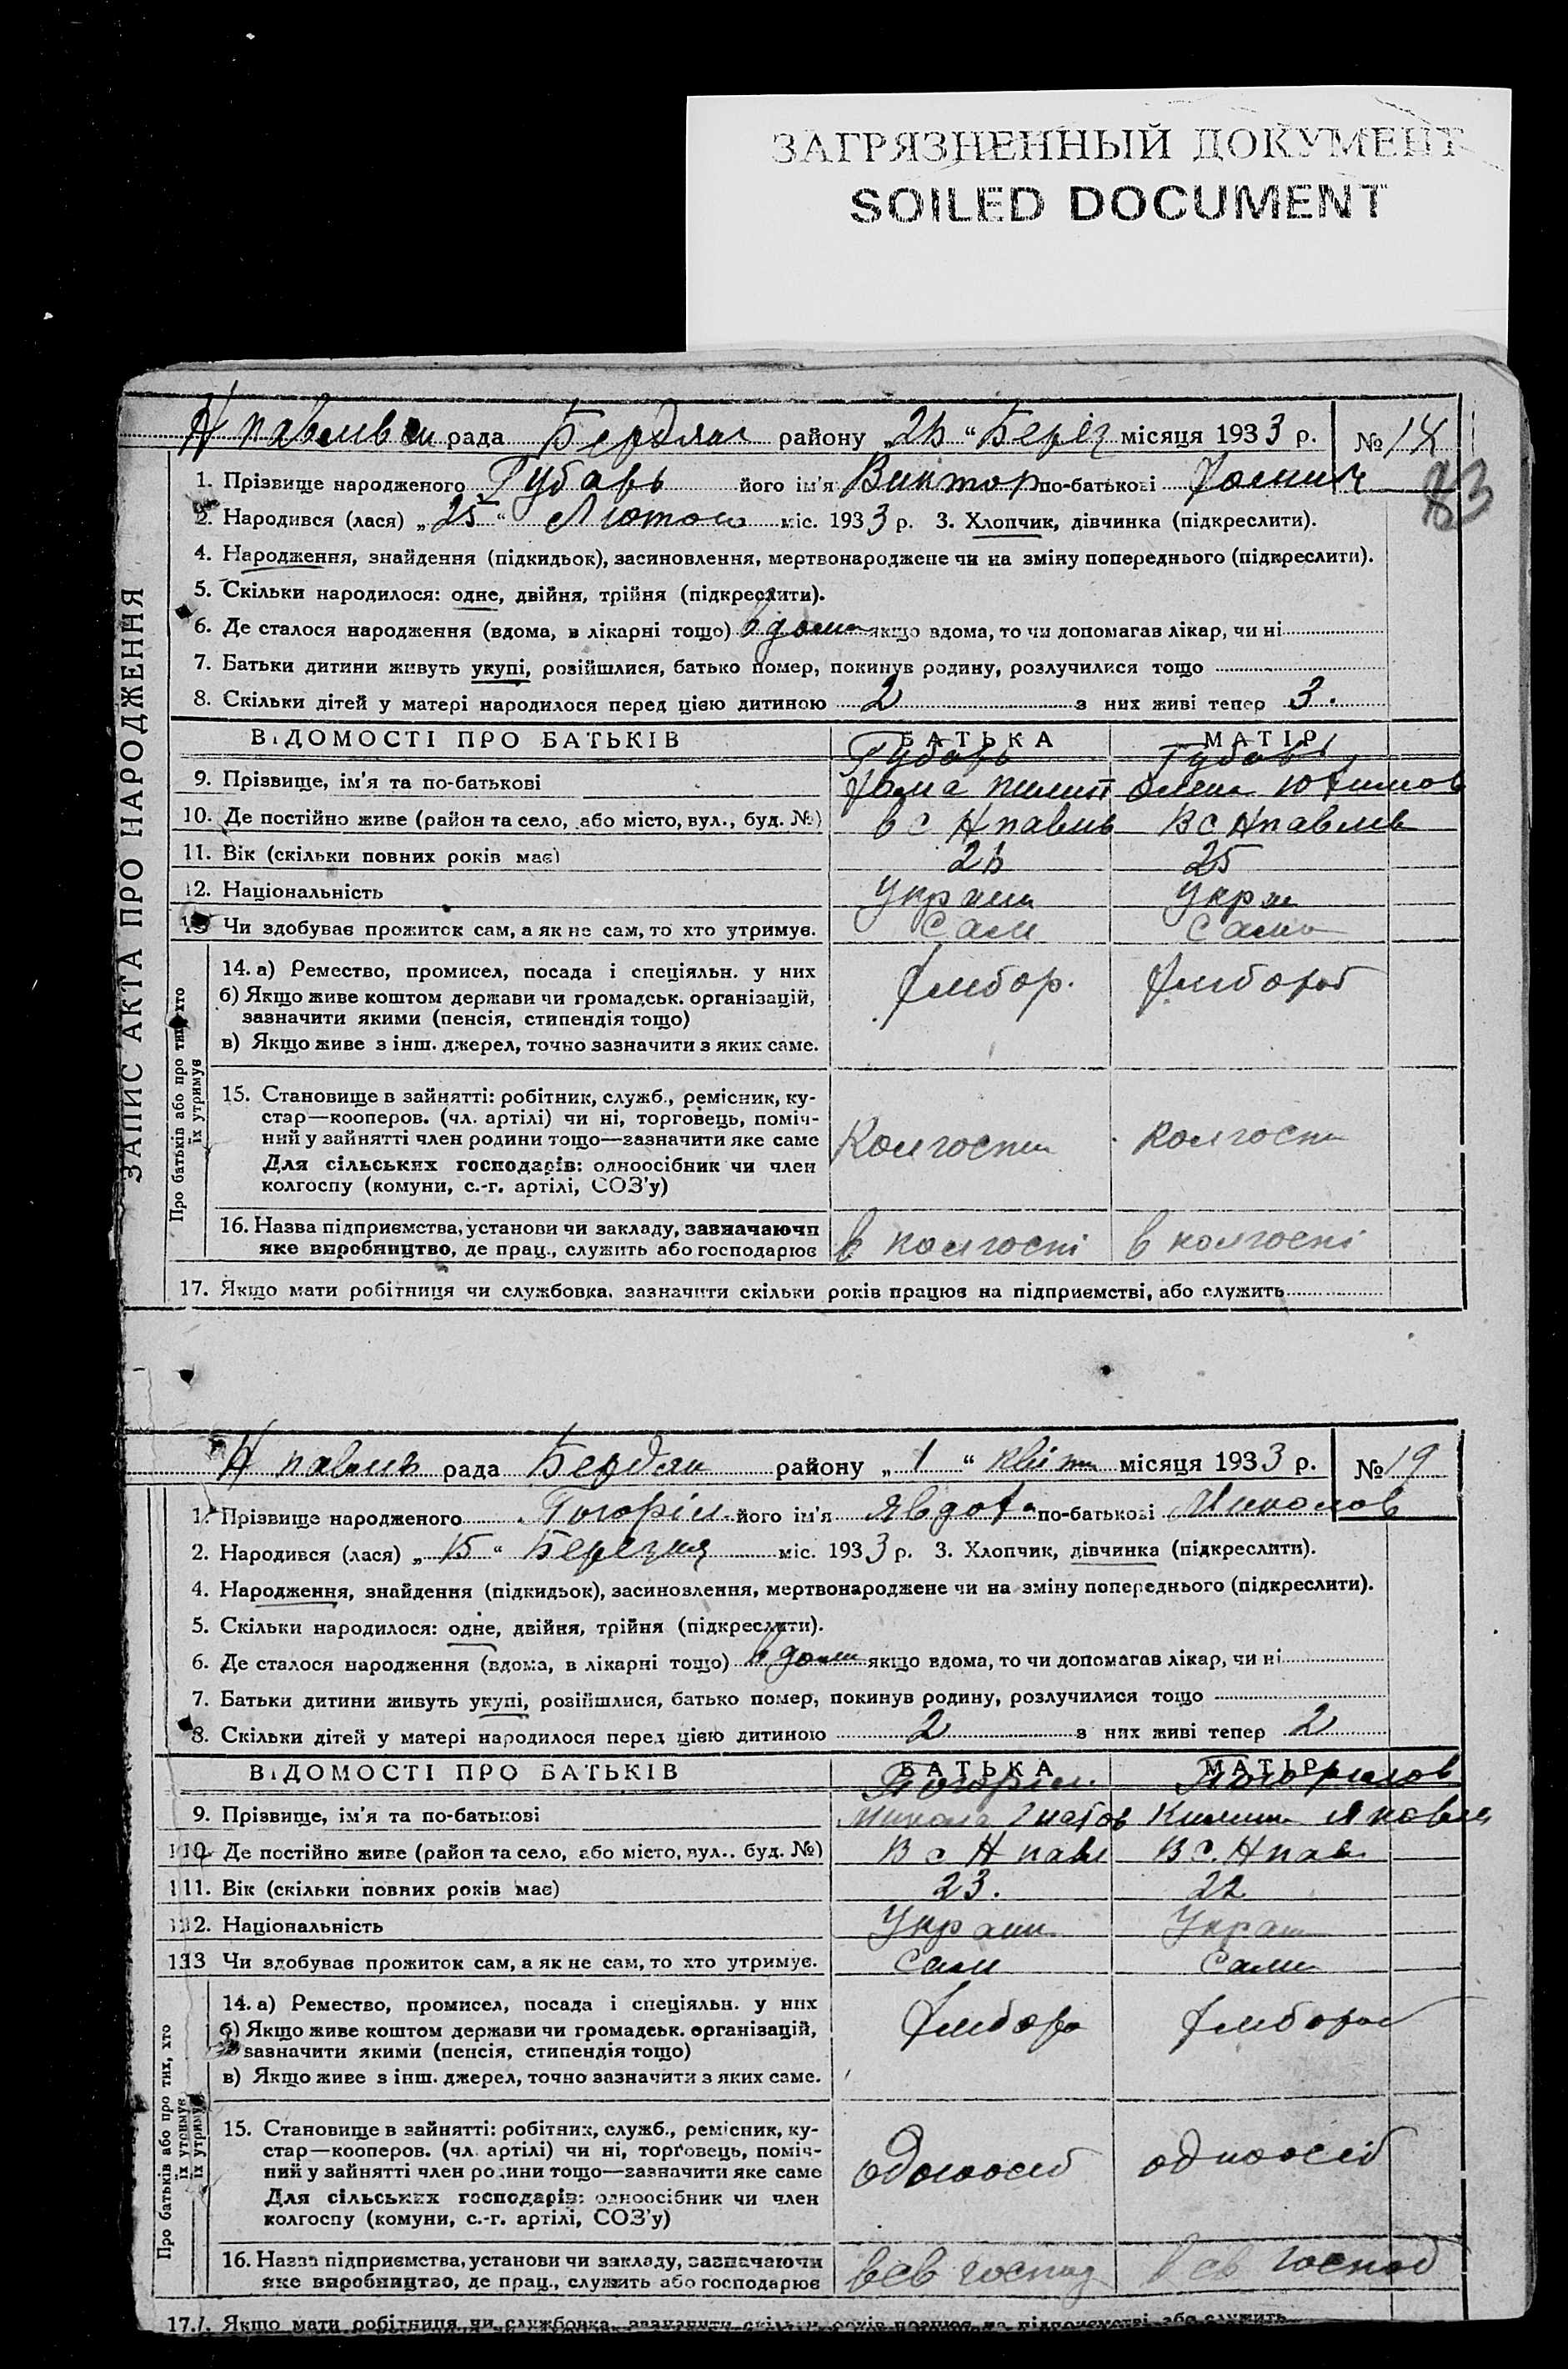 ЗАГРЯЗНЕННЫЙ ДОКУМЕНТ
SOILED DOCUMENT
ЗАПИС АКТА ПРО НАРОДЖЕННЯ
рада Бердян району „ “ Берез місяця 1933 р. №
83
1. Прізвище народженого Губарь його ім'я Виктор по-батькові
2. Народився (лася) „25“ Лютого міс. 1933 р. 3. Хлопчик, дівчинка (підкреслити).
4. Народження, знайдення (підкидьок), засиновлення, мертвонароджене чи на зміну попереднього (підкреслити).
5. Скільки народилося: одне, двійня, трійня (підкреслити).
6. Де сталося народження (вдома, в лікарні тощо) вдома якщо вдома, то чи допомагав лікар, чи ні
7. Батьки дитини живуть укупі, розійшлися, батько помер, покинув родину, розлучилися тощо
8. Скільки дітей у матері народилося перед цією дитиною 2 з них живі тепер 3.
ВІДОМОСТІ ПРО БАТЬКІВ БАТЬКА МАТІР
Губарь Губарь
9. Прізвище, ім'я та по-батькові
10. Де постійно живе (район та село, або місто, вул., буд. №) в с Н павлив В с Н павлив
11. Вік (скільки повних років має) 25
12. Національність
13 Чи здобуває прожиток сам, а як не сам, то хто утримує. Сам Сама
Про батьків або про тих, хто їх утримує
14. а) Ремество, промисел, посада і спеціяльн. у них
б) Якщо живе коштом держави чи громадськ. організацій,
зазначити якими (пенсія, стипендія тощо)
в) Якщо живе з інш. джерел, точно зазначити з яких саме.
15. Становище в зайнятті: робітник, служб., ремісник, ку-
стар—кооперов. (чл. артілі) чи ні, торговець, поміч-
ний у зайнятті член родини тощо—зазначити яке саме
Для сільських господарів: одноосібник чи член
колгоспу (комуни, с.-г. артілі, СОЗ'у)
16. Назва підприємства, установи чи закладу, зазначаючи
яке виробництво, де прац., служить або господарює в колгоспі в колгоспі
17. Якщо мати робітниця чи службовка, зазначити скільки років працює на підприємстві, або служить
Н павлив рада Бердян району „1“ місяця 1933 р. № 19
1. Прізвище народженого його ім'я Явдоха по-батькові Миколов
2. Народився (лася) „15“ Березня міс. 1933 р. 3. Хлопчик, дівчинка (підкреслити).
4. Народження, знайдення (підкидьок), засиновлення, мертвонароджене чи на зміну попереднього (підкреслити).
5. Скільки народилося: одне, двійня, трійня (підкреслити).
6. Де сталося народження (вдома, в лікарні тощо) вдома якщо вдома, то чи допомагав лікар, чи ні
7. Батьки дитини живуть укупі, розійшлися, батько помер, покинув родину, розлучилися тощо
8. Скільки дітей у матері народилося перед цією дитиною 2 з них живі тепер 2
ВІДОМОСТІ ПРО БАТЬКІВ БАТЬКА МАТІР
9. Прізвище, ім'я та по-батькові Микола
10. Де постійно живе (район та село, або місто, вул., буд. №) В с Н павл В с. Н пав
11. Вік (скільки повних років має) 23. 22
12. Національність
13 Чи здобуває прожиток сам, а як не сам, то хто утримує. Сам Сама
Про батьків або про тих, хто їх утримує
14. а) Ремество, промисел, посада і спеціяльн. у них
б) Якщо живе коштом держави чи громадськ. організацій,
зазначити якими (пенсія, стипендія тощо)
в) Якщо живе з інш. джерел, точно зазначити з яких саме.
15. Становище в зайнятті: робітник, служб., ремісник, ку-
стар—кооперов. (чл. артілі) чи ні, торговець, поміч-
ний у зайнятті член родини тощо—зазначити яке саме одноосіб
Для сільських господарів: одноосібник чи член
колгоспу (комуни, с.-г. артілі, СОЗ'у)
16. Назва підприємства, установи чи закладу, зазначаючи
яке виробництво, де прац., служить або господарює в св господ
17. Якщо мати робітниця чи службовка, зазначити скільки років працює на підприємстві, або служить